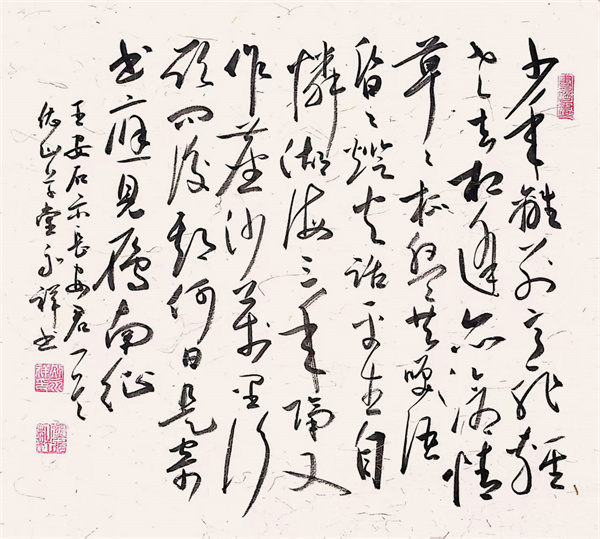 少年離別意非輕
老去相逢亦愴情
草々杯盤共笑語
昏々燈火話平生自
憐湖海三年隔又
作塵沙萬里行
欲問後期何日是寄
書應見雁南征
王安石示長安君一首
山草堂永祥書